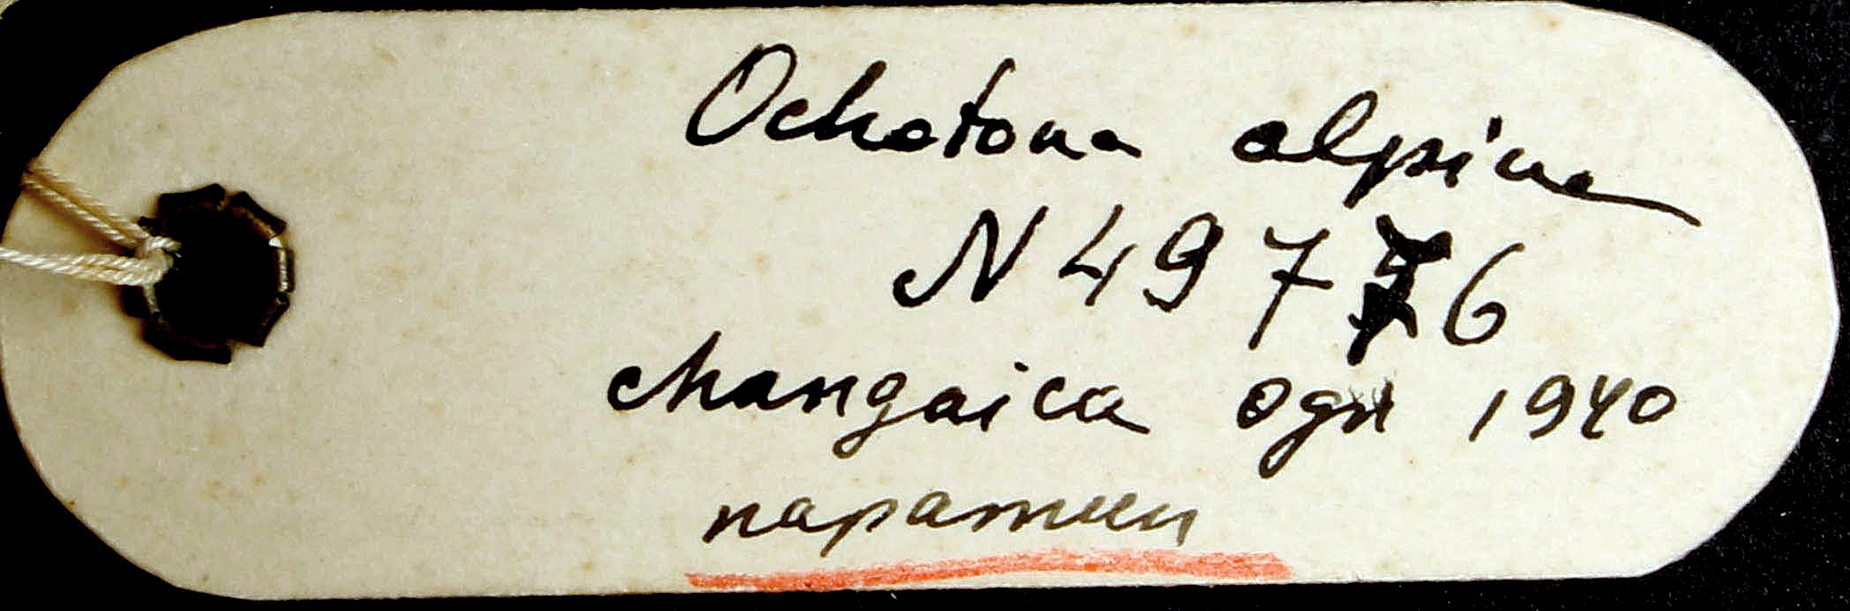 Ochotona alpina
N 49776
changaica Ogn 1940
паратип